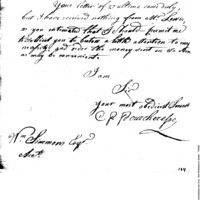 Your letter of 27 ultimo came duly,
but I have received nothing from Mr. Lewis,
as you intimated that I should permit me
to request you to take a little attention to my
request, and order the money sent on as soon
as may be convenient.
I am
Sir,
Your most obedient Servt
C. R.
Wm Simmons Esqr.
Acct.